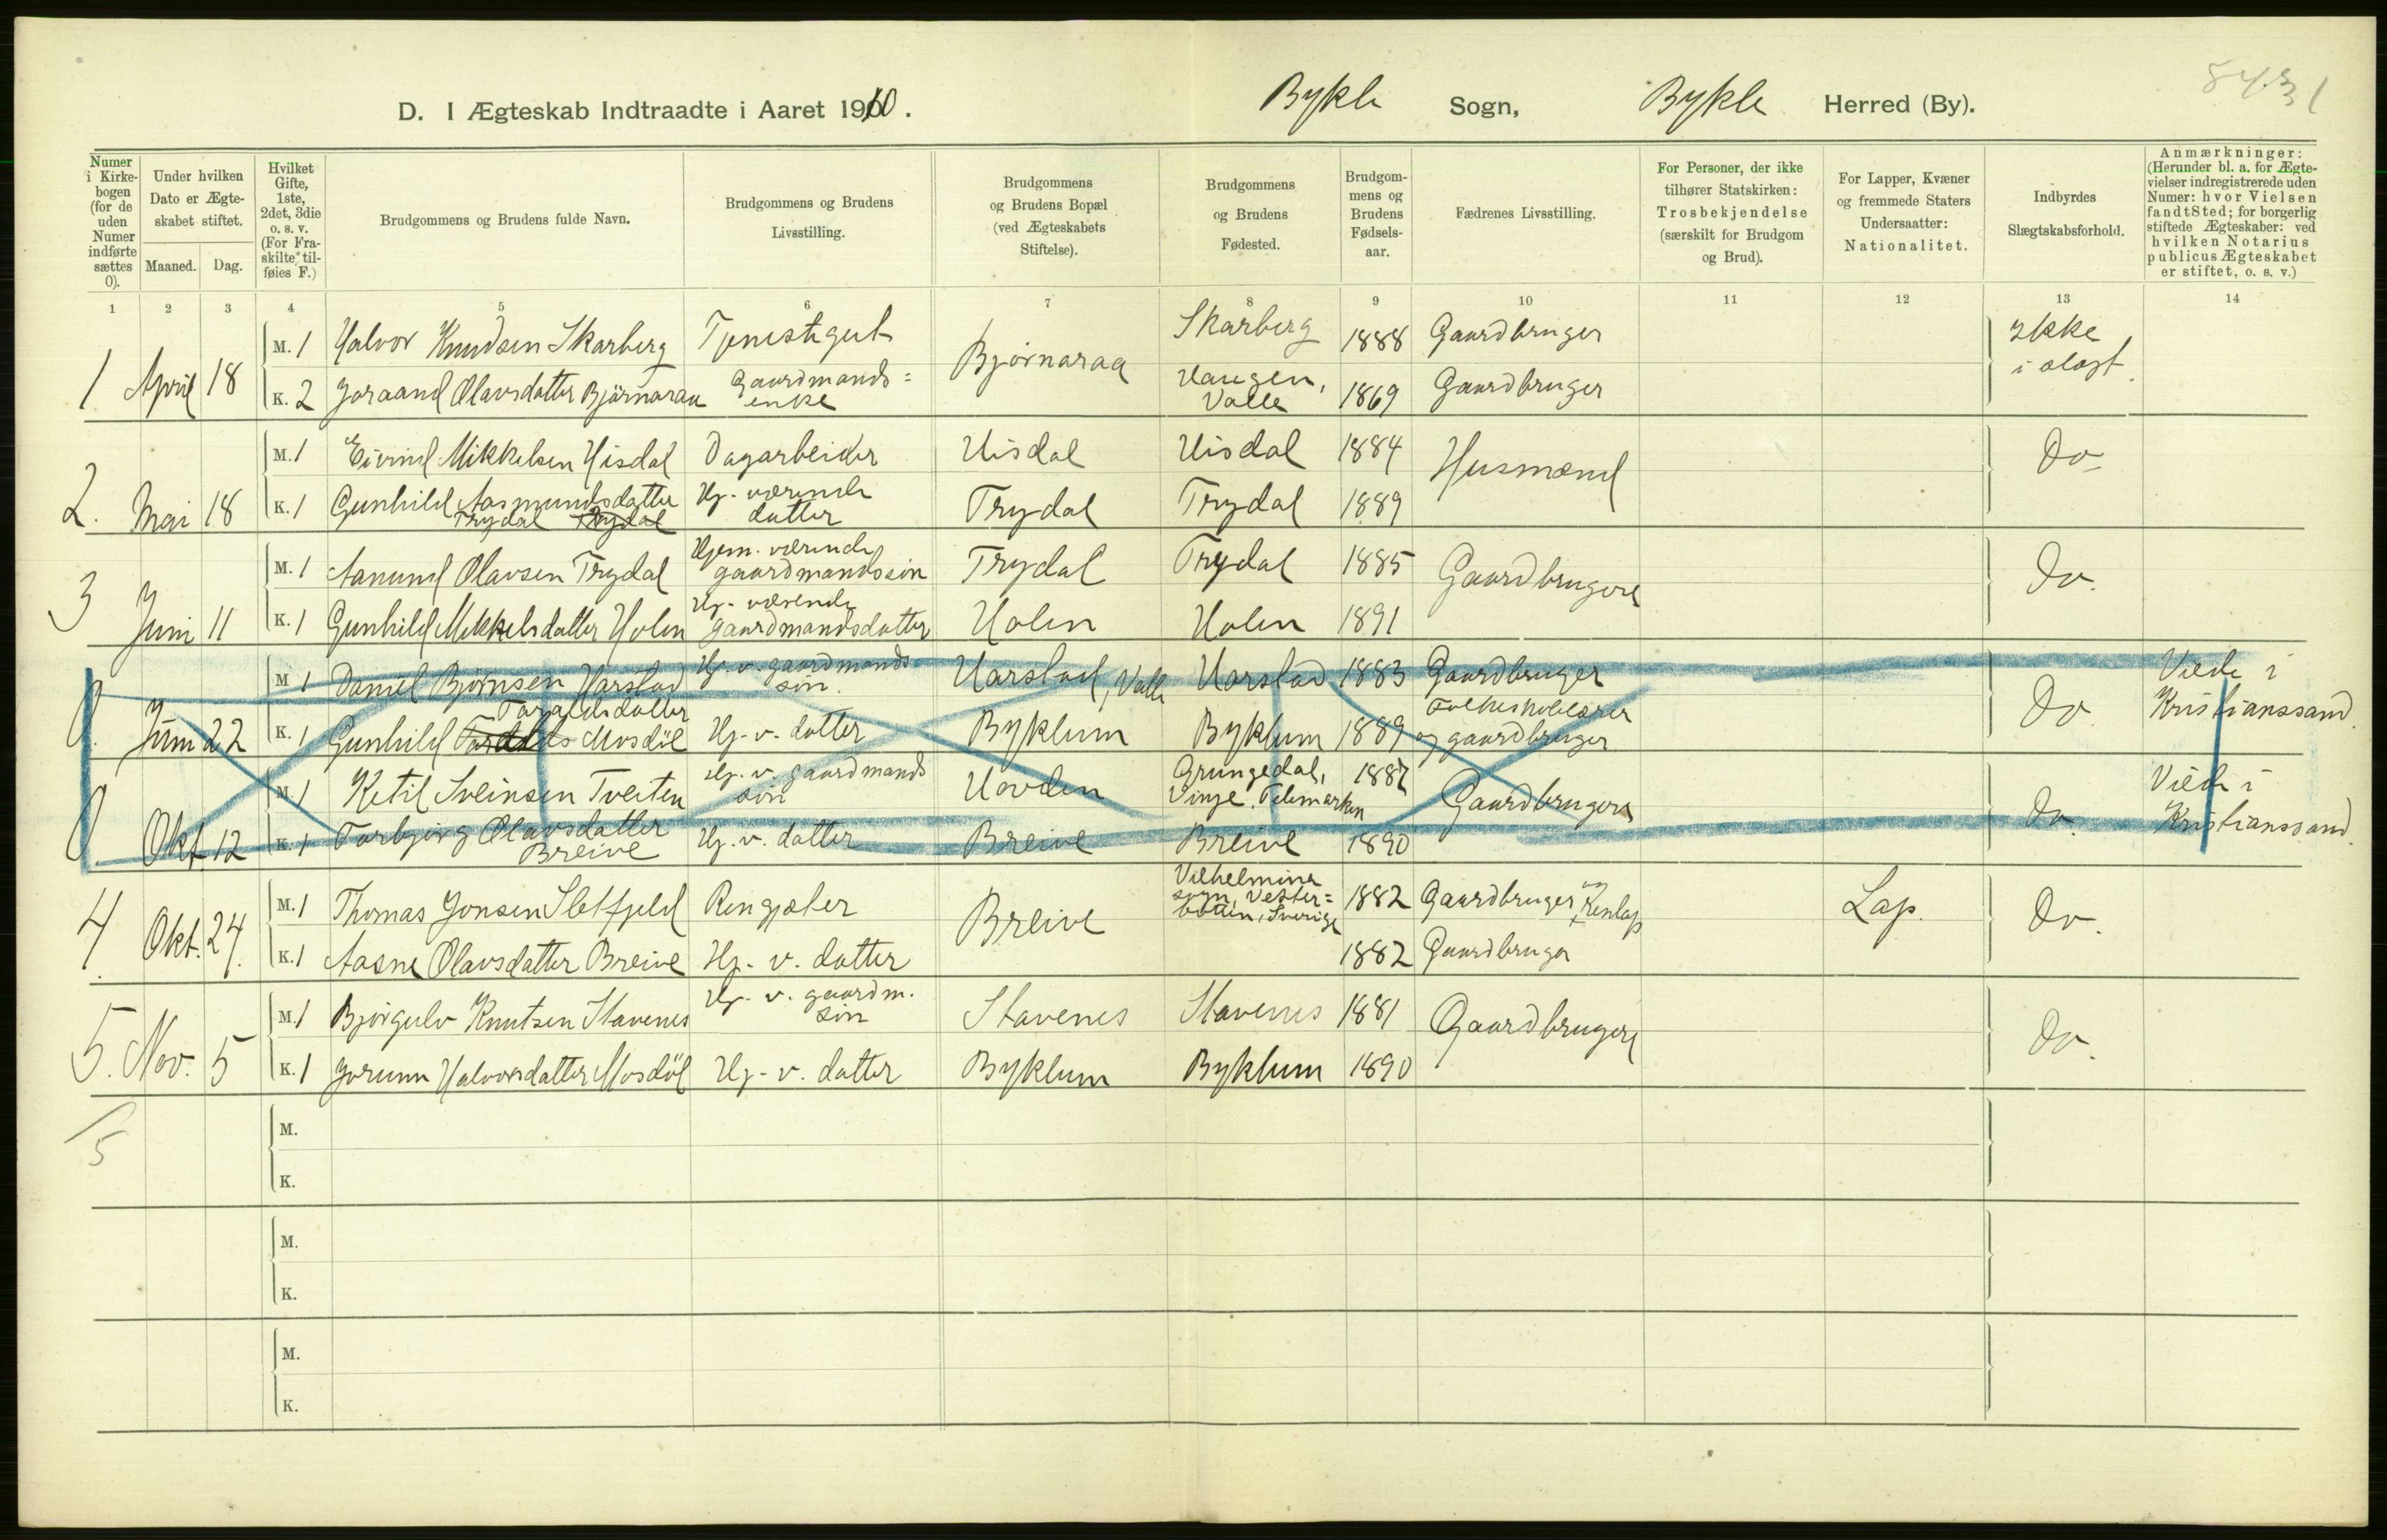 8431
D. I Ægteskab Indtraadte i Aaret 1910. Bykle Sogn, Bykle Herred (By).
Numer i Kirkebogen (for de uden Numer indførte sættes 0).
Under hvilken Dato er Ægteskabet stiftet.
Maaned. Dag.
Hvilket Gifte, 1ste, 2det, 3die o. s. v. (For Fraskilte tilføies F.)
Brudgommens og Brudens fulde Navn.
Brudgommens og Brudens Livsstilling.
Brudgommens og Brudens Bopæl (ved Ægteskabets Stiftelse).
Brudgommens og Brudens Fødested.
Brudgommens og Brudens Fødselsaar.
Fædrenes Livsstilling.
For Personer, der ikke tilhører Statskirken: Trosbekjendelse (særskilt for Brudgom og Brud).
For Lapper, Kvæner og fremmede Staters Undersaatter: Nationalitet.
Indbyrdes Slægtskabsforhold.
Anmærkninger: (Herunder bl. a. for Ægtevielser indregistrerede uden Numer: hvor Vielsen fandt Sted; for borgerlig stiftede Ægteskaber: ved hvilken Notarius publicus Ægteskabet er stiftet, o. s. v.)
1 2 3 4 5 6 7 8 9 10 11 12 13 14
1 April 18 M. 1 Halvor Knudsen Skarberg Tjenestegut Bjørnaraa Skarberg 1888 Gaardbruger Ikke i slægt.
K. 2 Joraand Olavsdatter Björnaraa Gaardmands=enke Haugen, Valle 1869 Gaardbruger
2. Mai 18 M. 1 Eivind Mikkelsen Hisdal Dagarbeider Hisdal Hisdal 1884 Husmænd Do.
K. 1 Gunhild Aasmundsdatter Trydal Trydal Hj. værende datter Trydal Trydal 1889
3 Juni 11 M. 1 Aanund Olavsen Trydal Hjem. værende gaardmandssøn Trydal Trydal 1885 Gaardbrugere Do.
K. 1 Gunhild Mikkelsdatter Holen Hj. værende gaardmandsdatter Holen Holen 1891
0. Juni 22 M 1 Daniel Bjørnsen Harstad Hj. v. gaardmands søn. Harstad, Valle Harstad 1883 Gaardbruger Do Viede i Kristianssand.
K. 1 Gunhild Taraldsdatter Mosdöl Hj. v. datter Byklum Byklum 1889 Folkeskolelærer og gaardbruger
0. Okt. 12 M. 1 Ketil Sveinsen Tveiten Hj. v. gaardmands søn Hovden Grungedal, Vinje, Telemarken 1887 Gaardbrugere Do. Viede i Kristianssand.
K. 1 Torbjørg Olavsdatter Breive Hj. v. datter Breive Breive 1890
4. Okt. 24. M. 1 Thomas Jonsen Sletfjeld Rengjæter Breive Vilhelmina sogn, Vester=botten, Sverige 1882 Gaardbruger og Renlap Lap. Do.
K. 1 Aasne Olavsdatter Breive Hj. v. datter 1882 Gaardbruger
5. Nov. 5 M. 1 Bjørgulv Knutsen Stavenes Hj. v. gaardm. søn Stavenes Stavenes 1881 Gaardbrugere Do.
K. 1 Jorunn Halvorsdatter Mosdöl Hj. v. datter Byklum Byklum 1890
5
M.
K.
M.
K.
M.
K.